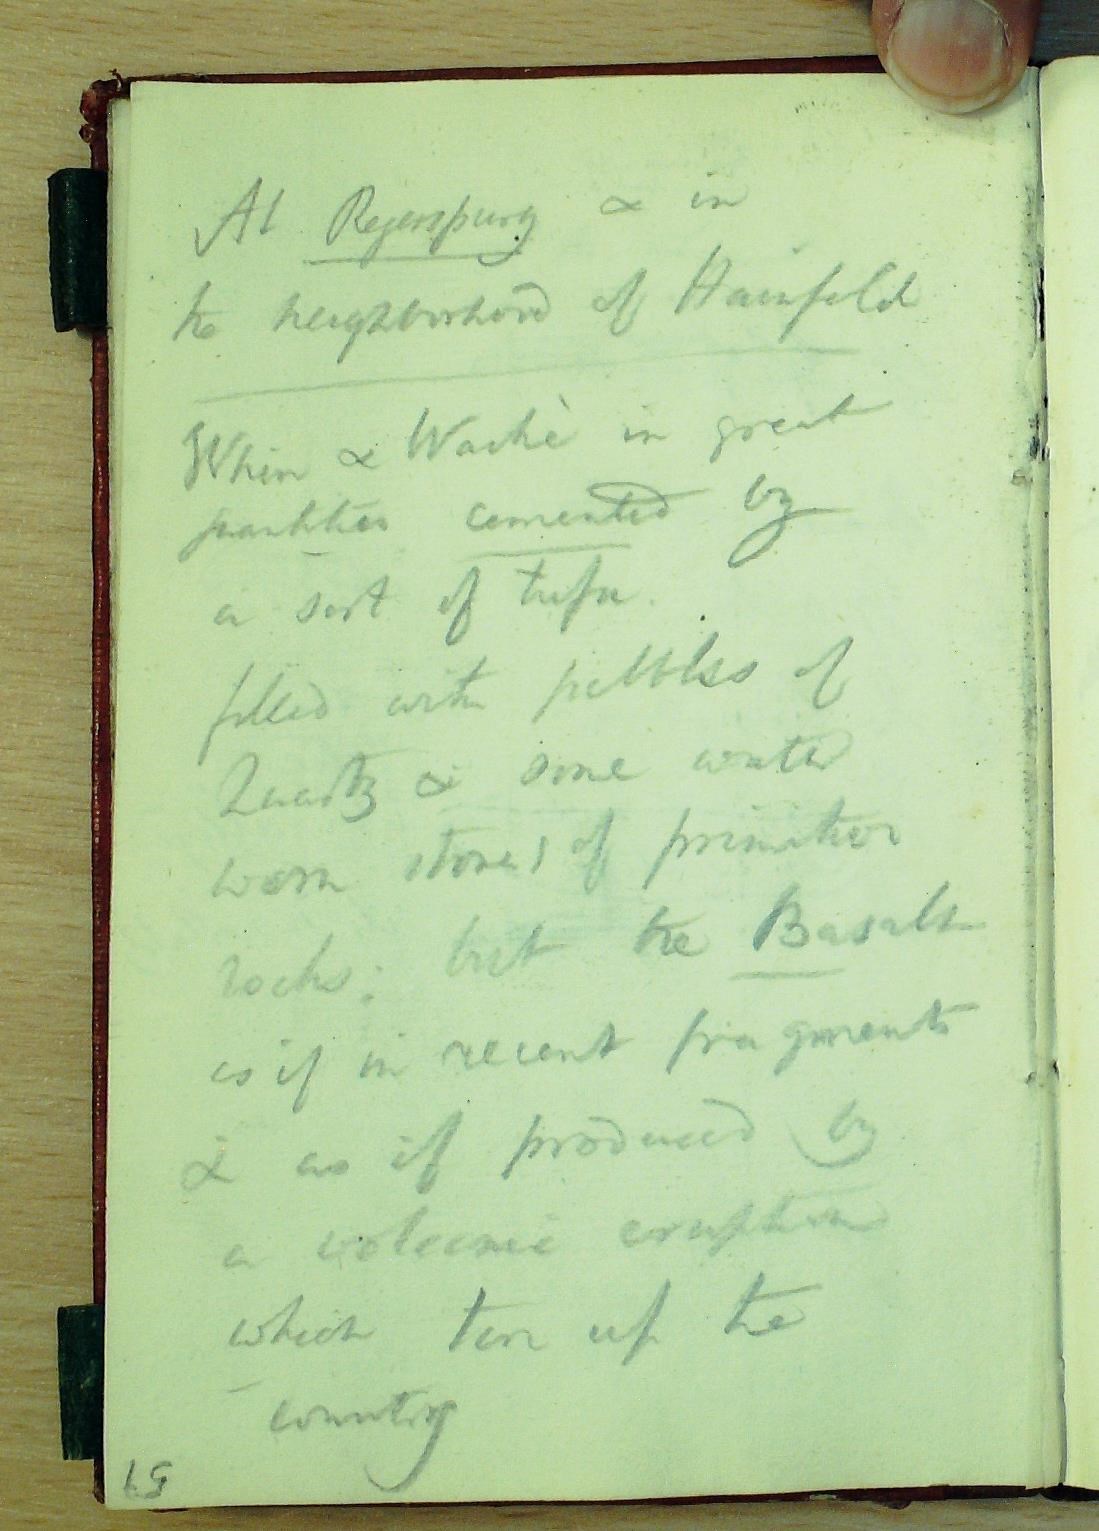 At Regerspurg & in
the neighborhood of Hainfeld
Whin & Wackè in great
quantities cemented by
a sort of tufa.
filled with pebbles of
Quartz & some water
worn stones of primitive
rocks: but the Basalt
as if in recent fragments
& as if produced by
a volcanic eruption
which tore up the
country